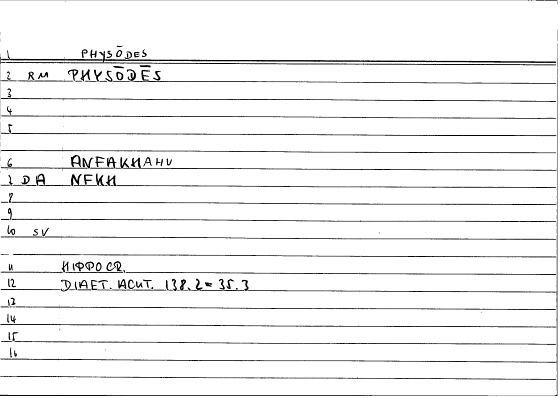 1 PHYSŌDES
2 RM PHYSŌDĒS
3
4
5
6 ANFAKHAHU
7 DA NFKH
8
9
10 SV
11 HIPPOCR.
12 DIAET. ACUT. 138.2 = 35.3
13
14
15
16